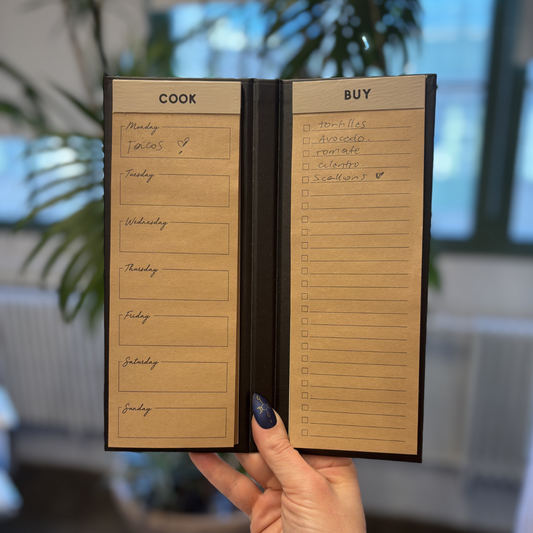 COOK
Monday
Tacos
Tuesday
Wednesday
Thursday
Friday
Saturday
Sunday
BUY
tortillas
Avocado.
tomate
cilantro
Scallions